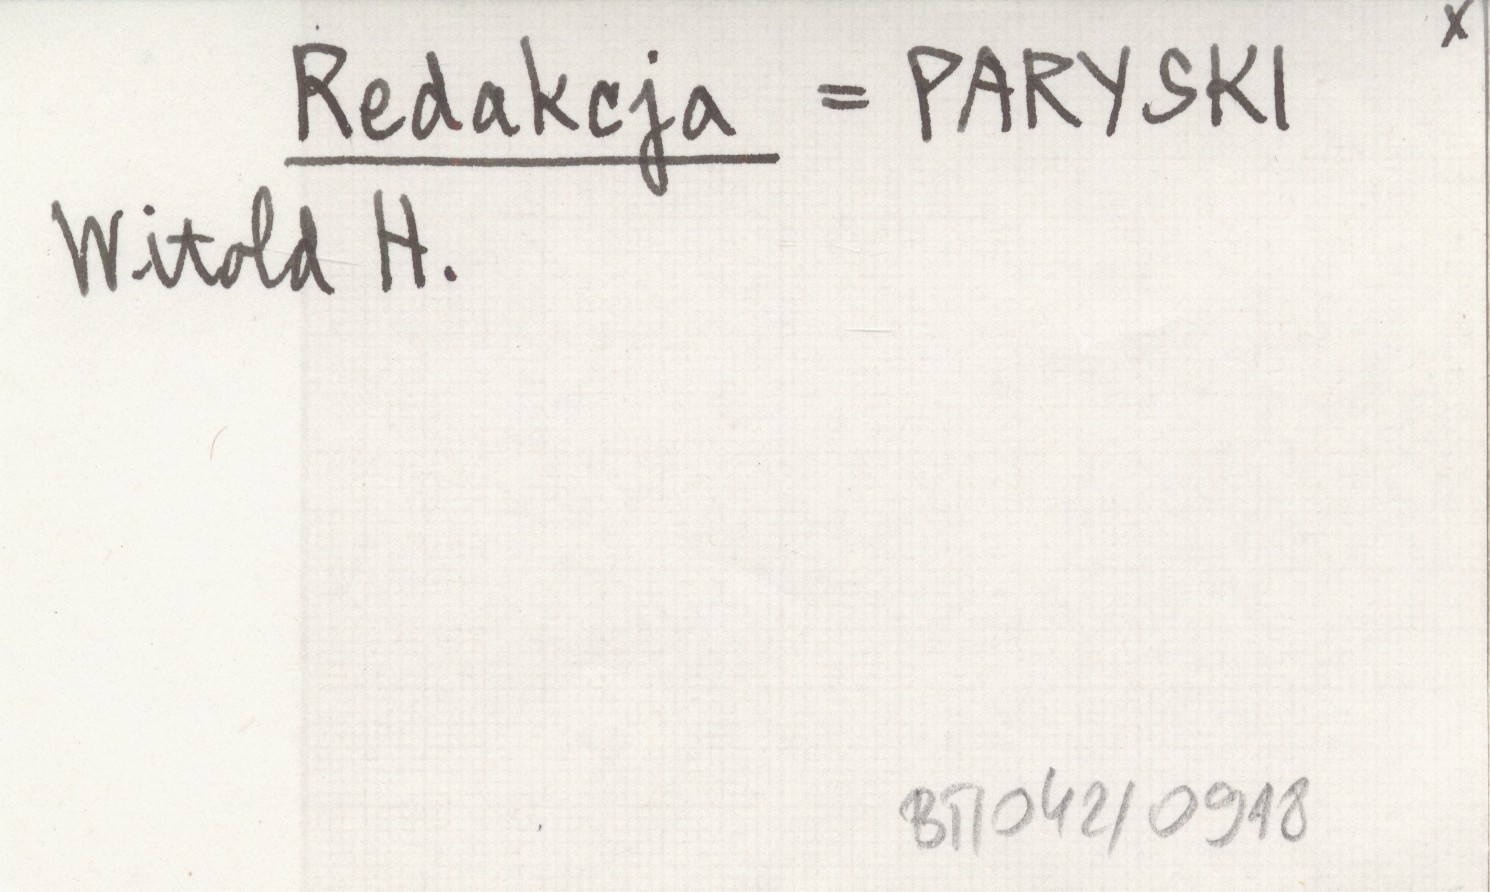 x
Redakcja = PARYSKI
Witold H.
BTI042/0918